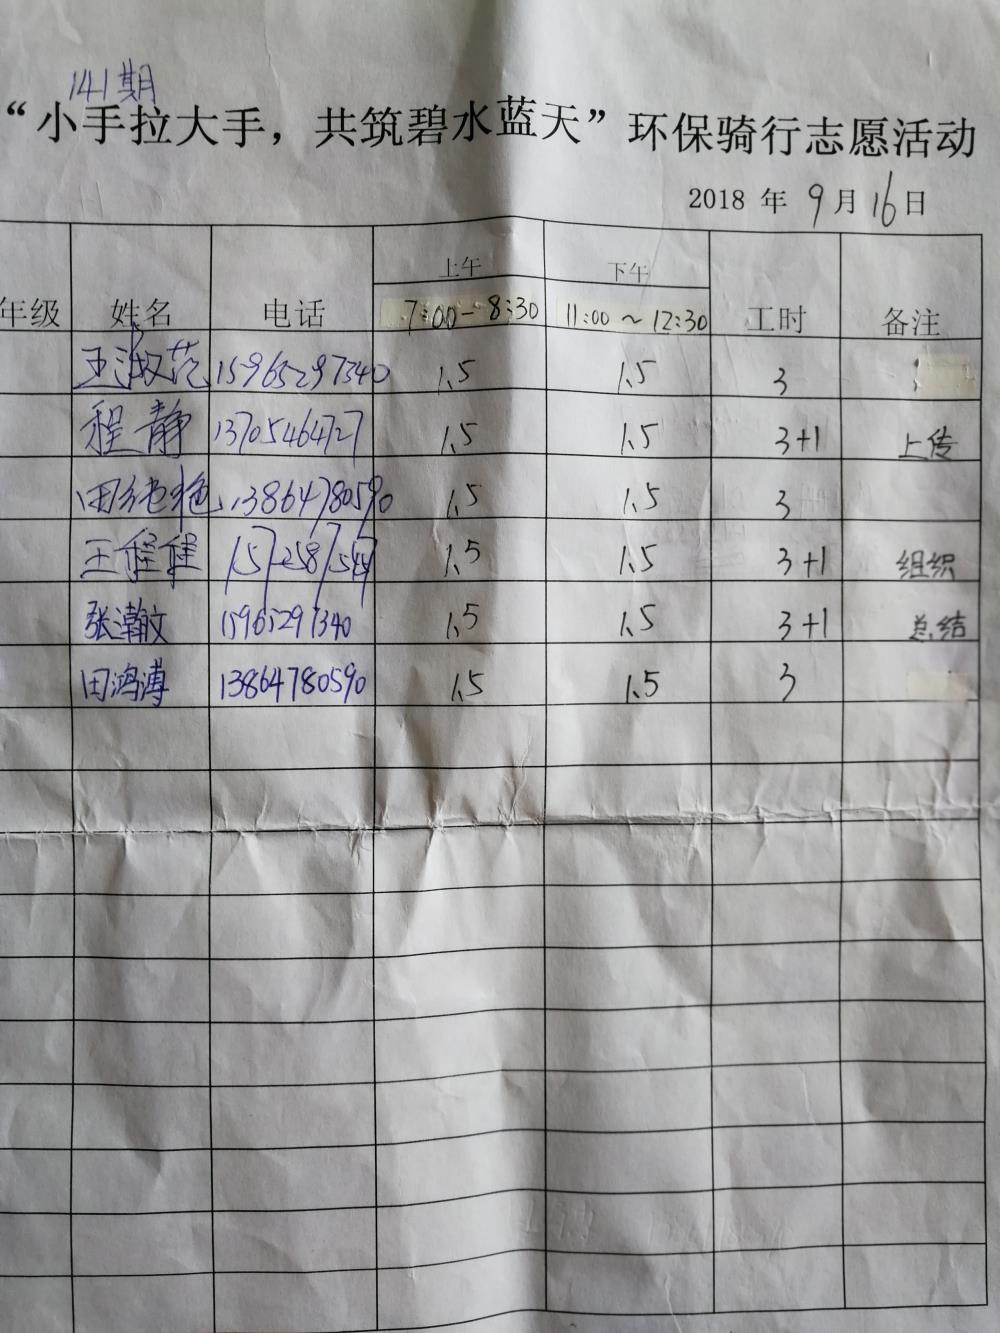 141期
“小手拉大手，共筑碧水蓝天”环保骑行志愿活动
2018 年 9月16日
年级 姓名 电话 上午 下午 工时 备注
7:00-8:30 11:00~12:30
王淑范 15965297340 1.5 1.5 3
程静 13705464727 1.5 1.5 3+1 上传
田纯艳 13864780590 1.5 1.5 3
王健健 1.5 1.5 3+1 组织
张瀚文 15965297340 1.5 1.5 3+1 总结
田鸿溥 13864780590 1.5 1.5 3